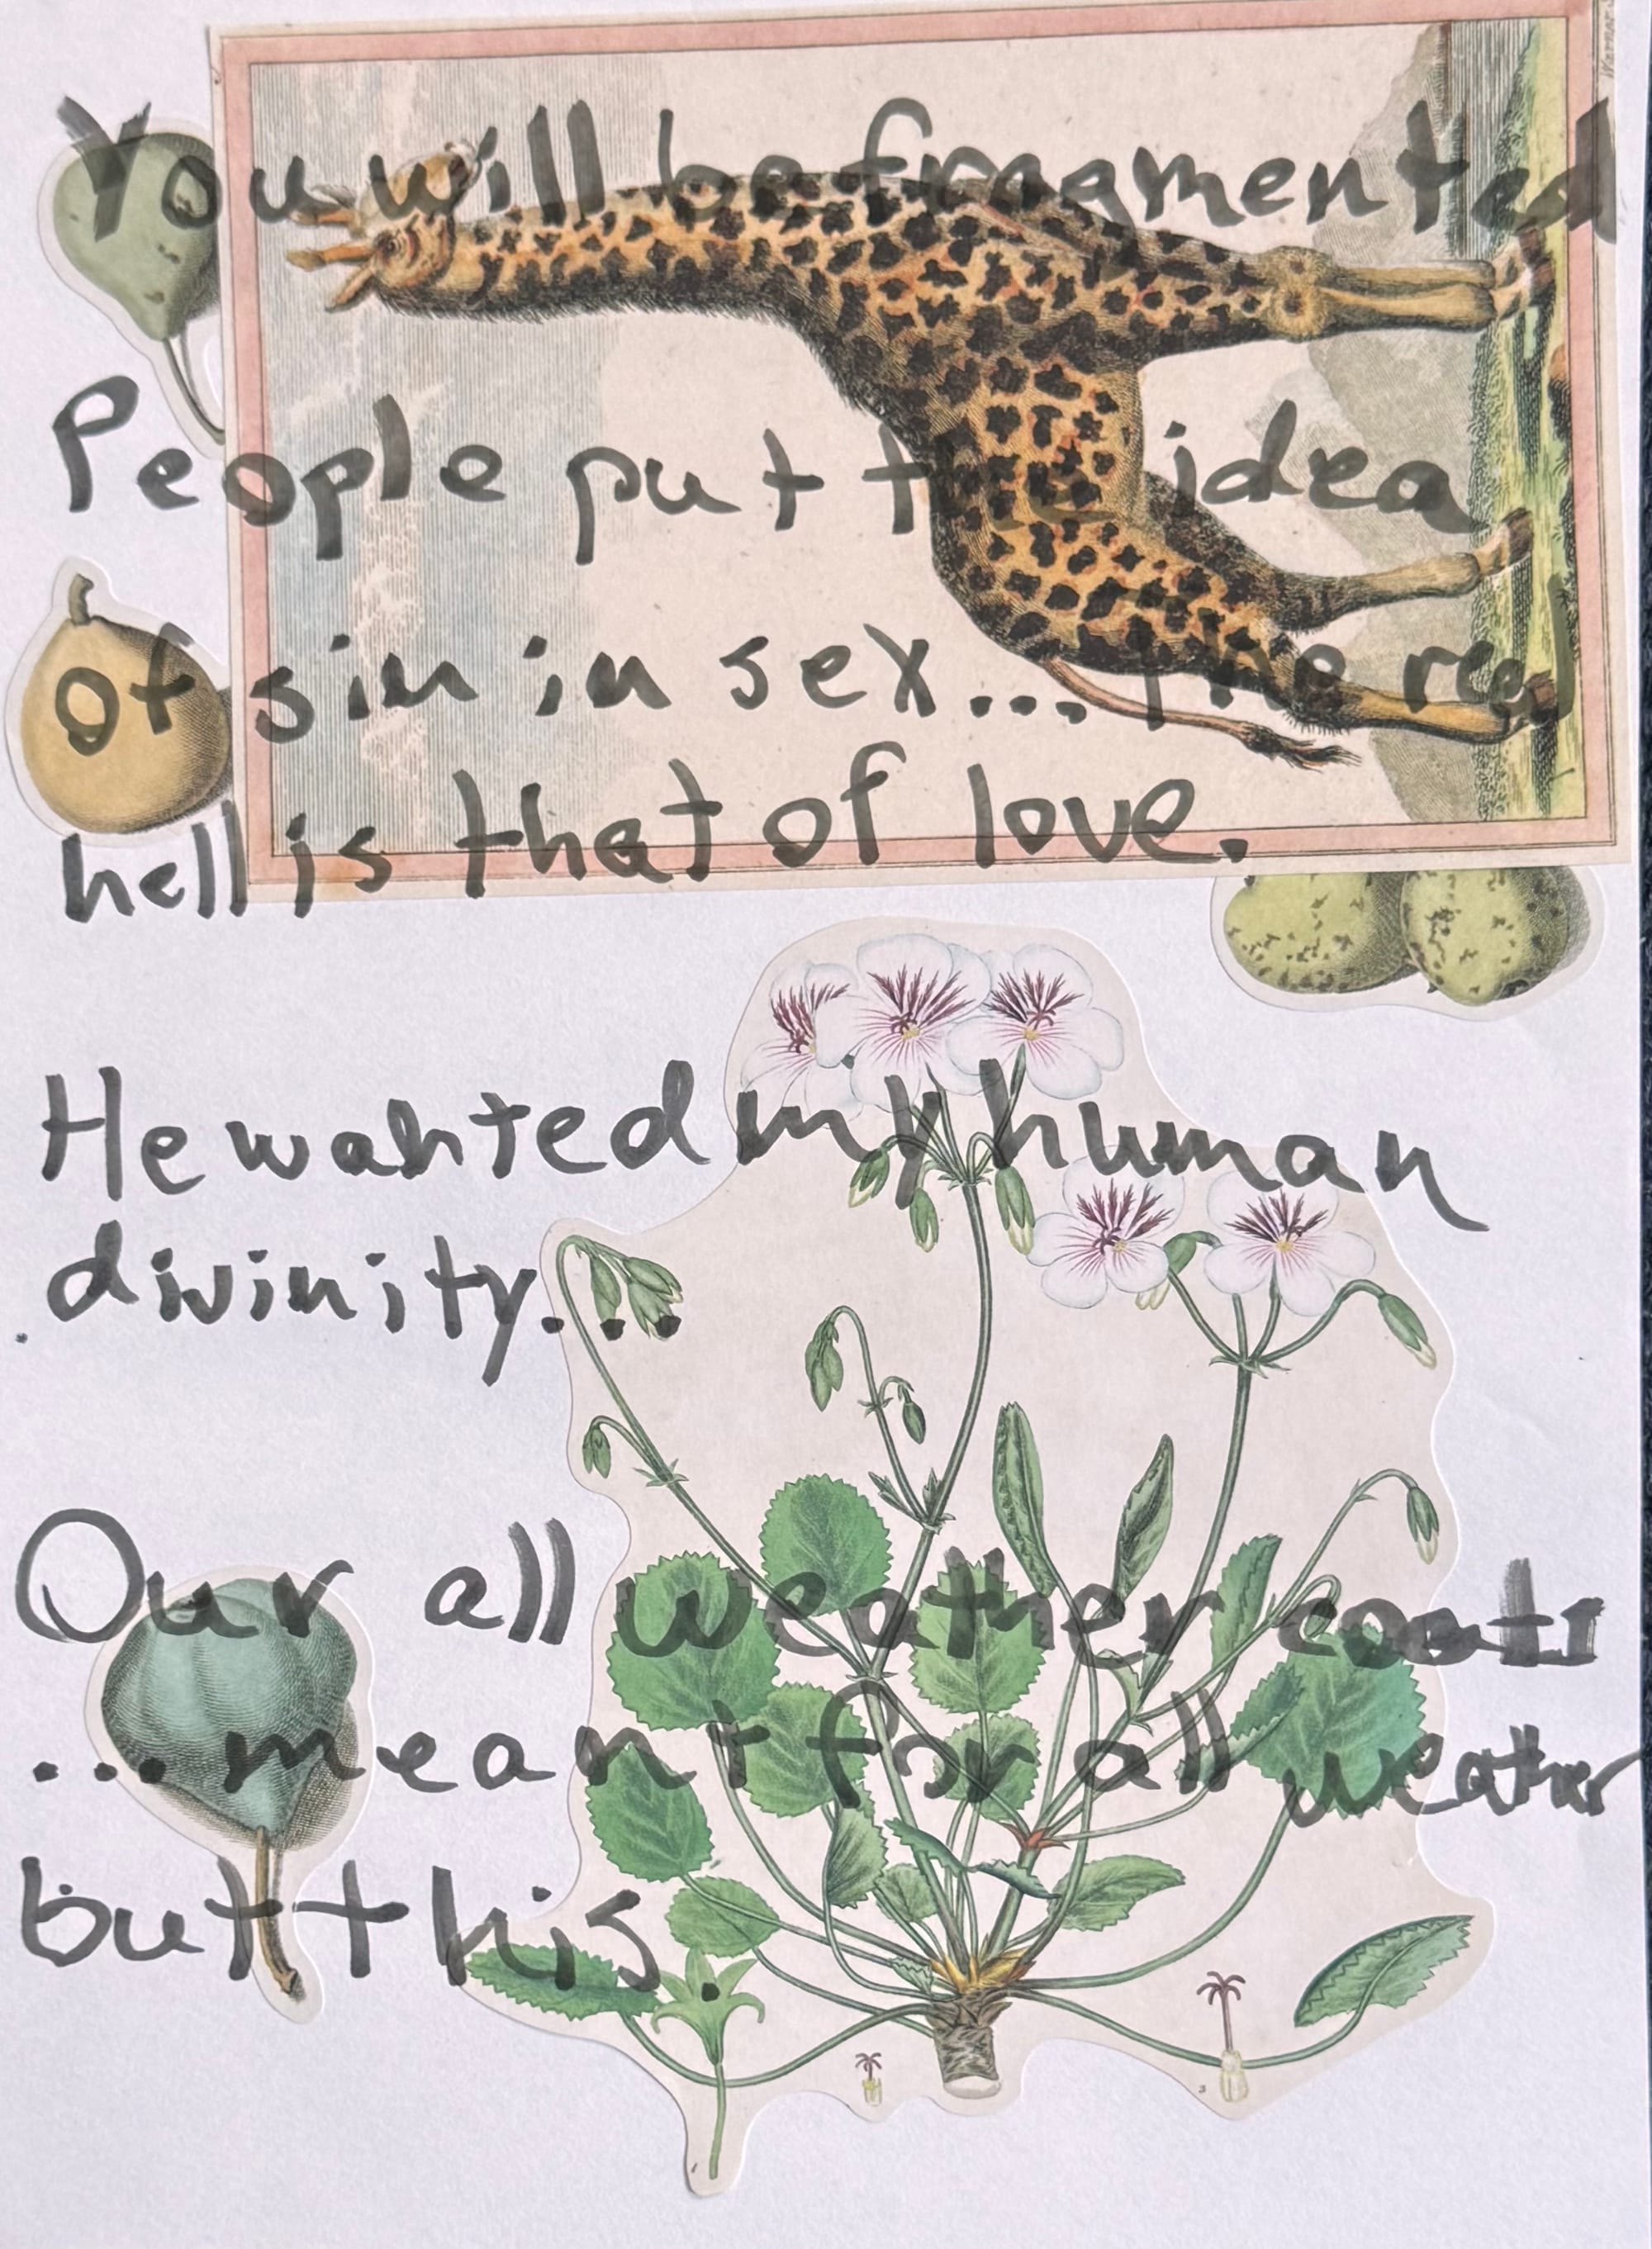 You will be fragmented
People put the idea
of sin in sex... The real
hell is that of love.
He wanted my human
divinity...
Our all weather coats
...meant for all weather
but this.